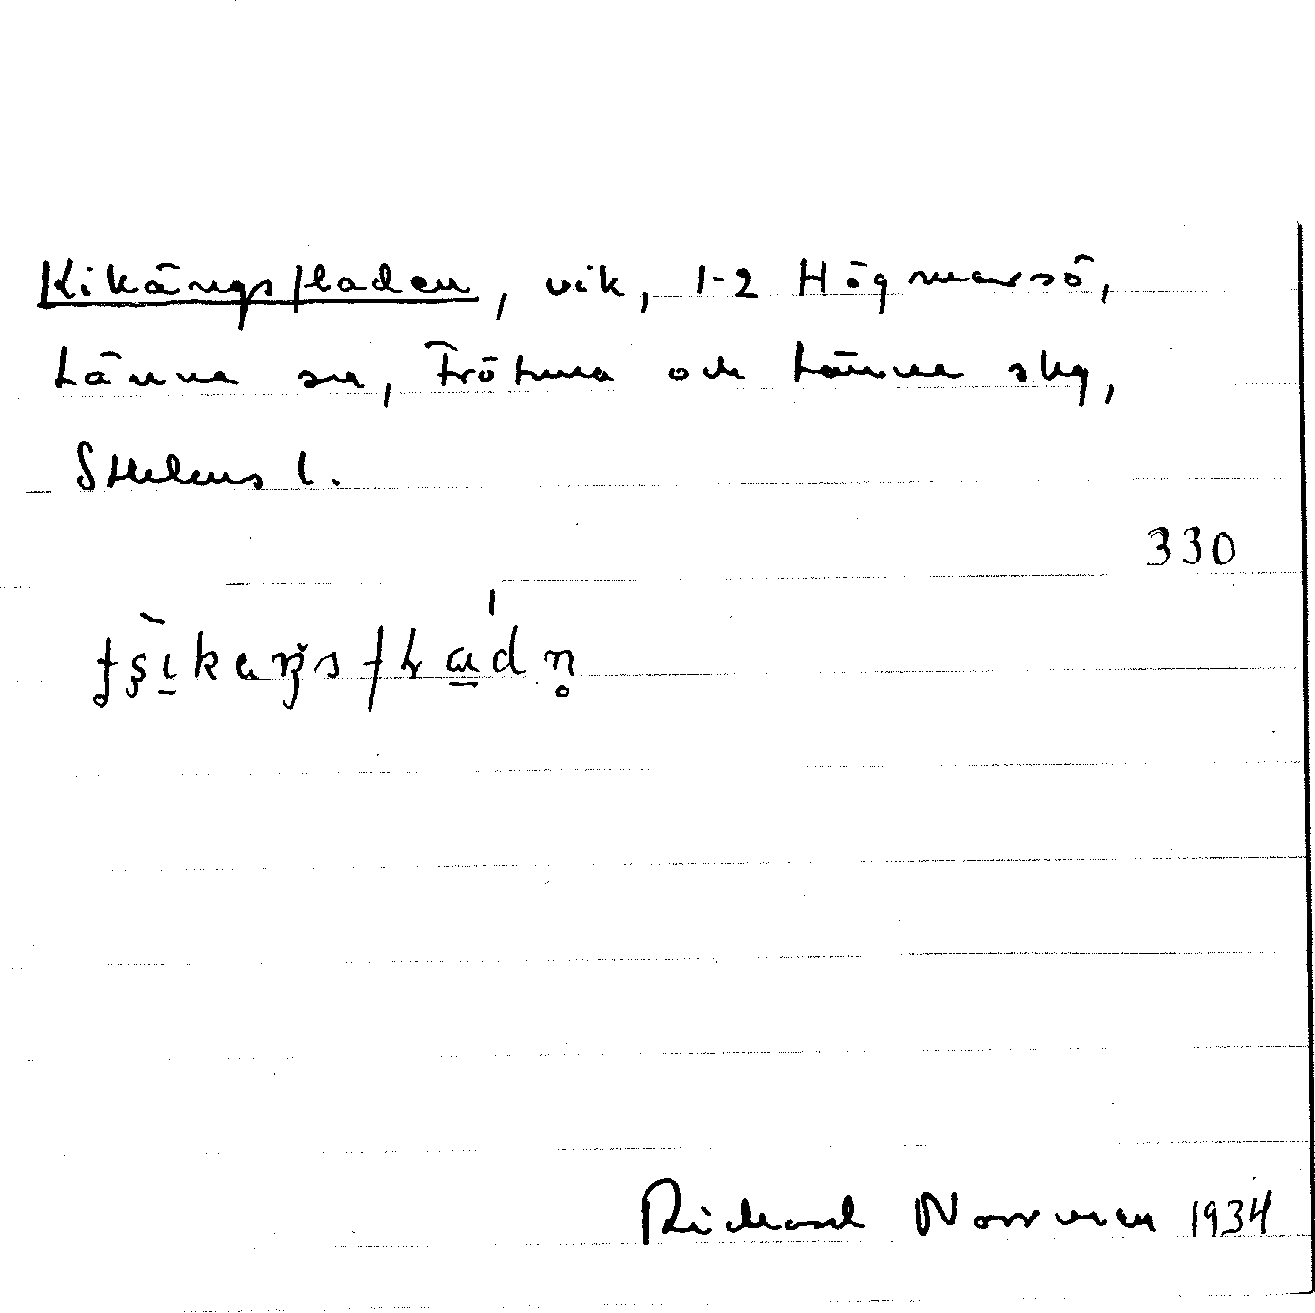 Kikängsfladen, vik, 1-2 Högmarsö,
Länna sn, Frötuna och Länna skg,
Sthlms l.
330
Richard Norrman 1934